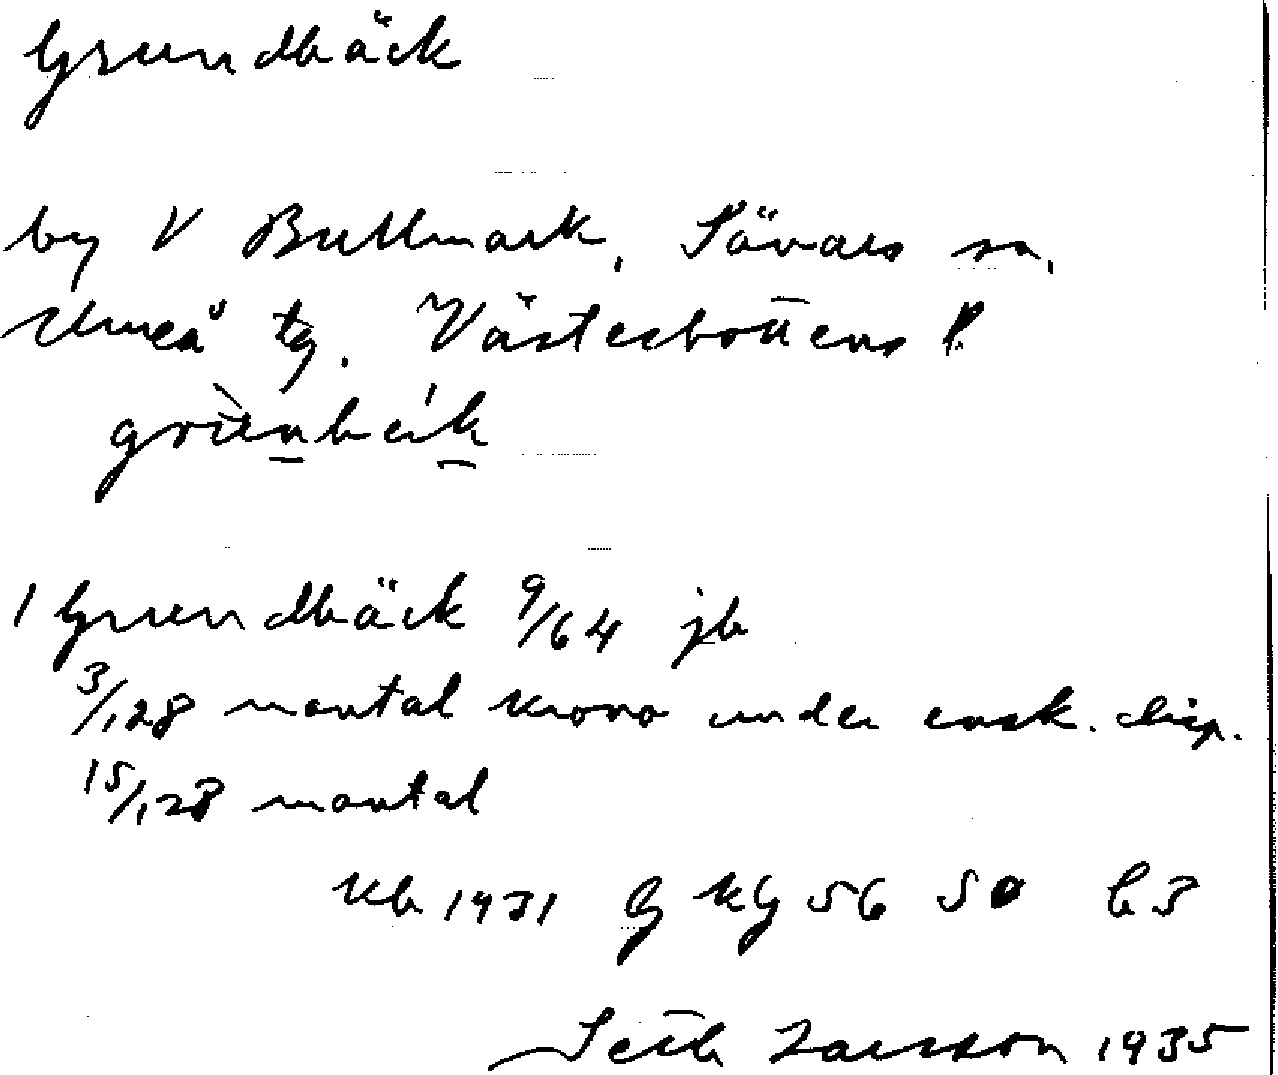 Grundbäck
by V Bullmark, Sävars sn,
Umeå tg. Västerbottens l.
1 Grundbäck 9/64 jb
3/128 mantal krono under ensk. disp.
15/128 mantal
kb 1931 G kG 56 50 b3
Seth Larsson 1935